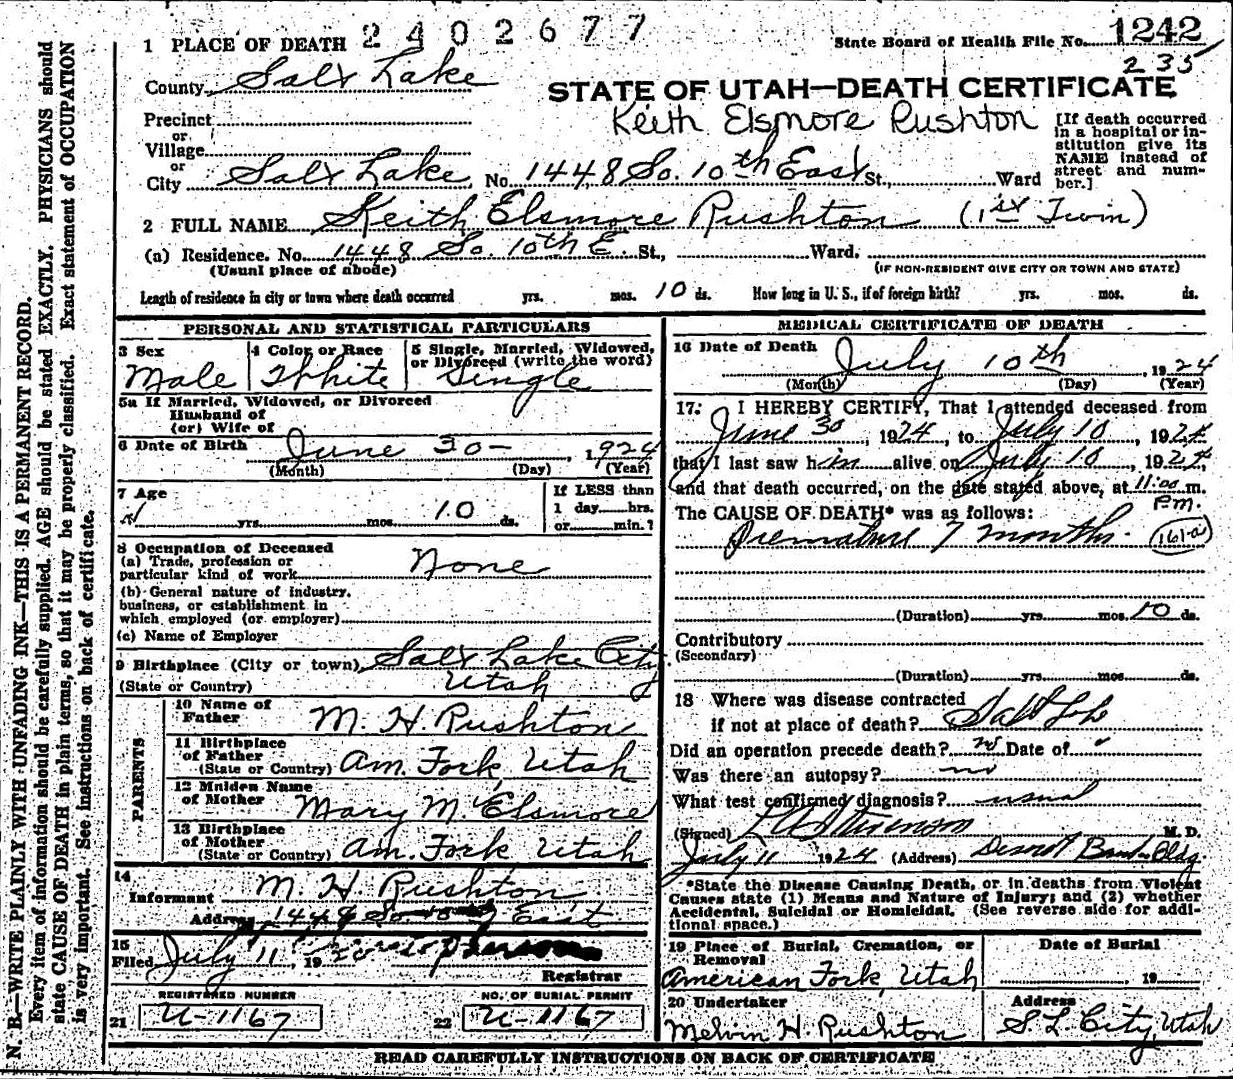 2402677
State Board of Health File No. 1242
235
1 PLACE OF DEATH
County Salt Lake
STATE OF UTAH—DEATH CERTIFICATE
Keith Elsmore Rushton
Precinct
or
Village
or
City Salt Lake, No. 1448 So. 10th East St., Ward
[If death occurred in a hospital or institution give its NAME instead of street and number.]
2 FULL NAME Keith Elsmore Rushton (1st Twin)
(a) Residence. No. 1448 So. 10th E. St., Ward.
(Usual place of abode)
(IF NON-RESIDENT GIVE CITY OR TOWN AND STATE)
Length of residence in city or town where death occurred yrs. mos. 10 ds. How long in U. S., if of foreign birth? yrs. mos. ds.
PERSONAL AND STATISTICAL PARTICULARS
3 Sex
Male
4 Color or Race
White
5 Single, Married, Widowed, or Divorced (write the word)
Single
5a If Married, Widowed, or Divorced
Husband of
(or) Wife of
6 Date of Birth June 30- 1924
(Month) (Day) (Year)
7 Age
yrs. mos. 10 ds.
If LESS than
1 day hrs.
or min.?
8 Occupation of Deceased
(a) Trade, profession or
particular kind of work None
(b) General nature of industry,
business, or establishment in
which employed (or employer)
(c) Name of Employer
9 Birthplace (City or town) Salt Lake City
(State or Country) Utah
PARENTS
10 Name of
Father M. H. Rushton
11 Birthplace
of Father
(State or Country) Am. Fork, Utah
12 Maiden Name
of Mother Mary M. Elsmore
13 Birthplace
of Mother
(State or Country) Am. Fork Utah
14
Informant M. H. Rushton
Address 1448 So 10 East
15
Filed July 11, 19
Registrar
REGISTERED NUMBER
21 U-1167
NO. OF BURIAL PERMIT
22 U-1167
MEDICAL CERTIFICATE OF DEATH
16 Date of Death July 10th, 1924
(Month) (Day) (Year)
17. I HEREBY CERTIFY, That I attended deceased from
June 30, 1924, to July 10, 1924,
that I last saw him alive on July 10, 1924,
and that death occurred, on the date stated above, at 11:00 m.
P.m.
The CAUSE OF DEATH* was as follows:
Premature 7 months. 161-a
(Duration) yrs. mos. 10 ds.
Contributory
(Secondary)
(Duration) yrs. mos. ds.
18 Where was disease contracted
if not at place of death? Salt Lake
Did an operation precede death? no Date of
Was there an autopsy? no
What test confirmed diagnosis? usual
(Signed) L A Stevenson M. D.
July 11 1924 (Address) Deseret Bank Bldg.
*State the Disease Causing Death, or in deaths from Violent
Causes state (1) Means and Nature of Injury; and (2) whether
Accidental, Suicidal or Homicidal. (See reverse side for addi-
tional space.)
19 Place of Burial, Cremation, or
Removal
American Fork, Utah
Date of Burial
19
20 Undertaker
Melvin H. Rushton
Address
S. L. City, Utah
READ CAREFULLY INSTRUCTIONS ON BACK OF CERTIFICATE
N. B.—WRITE PLAINLY WITH UNFADING INK—THIS IS A PERMANENT RECORD.
Every item of information should be carefully supplied. AGE should be stated EXACTLY. PHYSICIANS should
state CAUSE OF DEATH in plain terms, so that it may be properly classified. Exact statement of OCCUPATION
is very important. See instructions on back of certificate.